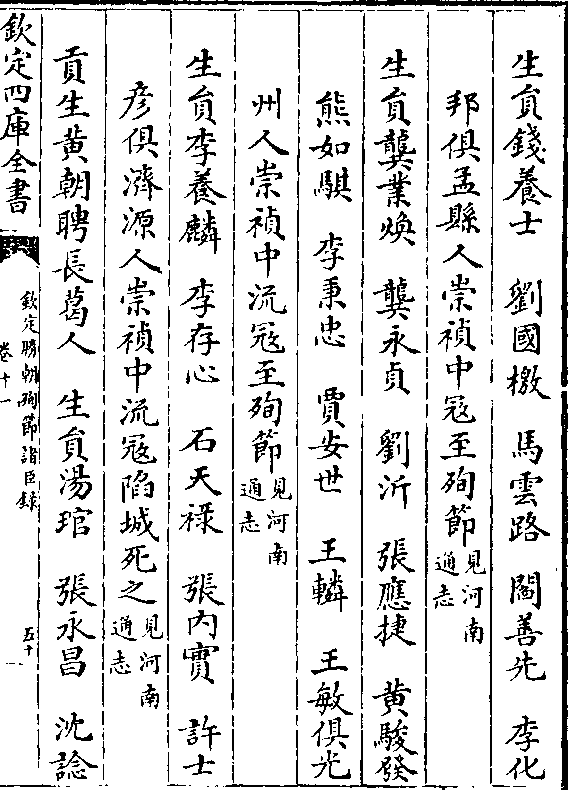 生員錢養士　劉國檄　馬雲路　閻善先　李化
邦俱孟縣人崇禎中冦至殉節見河南通志
生員龔業焕　龔永貞　劉沂　張應捷　黄駿發
熊如騏　李秉忠　賈安世　王轔　王敏俱光
州人崇禎中流冦至殉節見河南通志
生員李養麟　李存心　石天禄　張内實　許士
彦俱濟源人崇禎中流冦陷城死之見河南通志
貢生黄朝聘長葛人　生員湯琯　張永昌　沈諗
欽定四庫全書
欽定勝朝殉節諸臣錄
卷十一
五十一